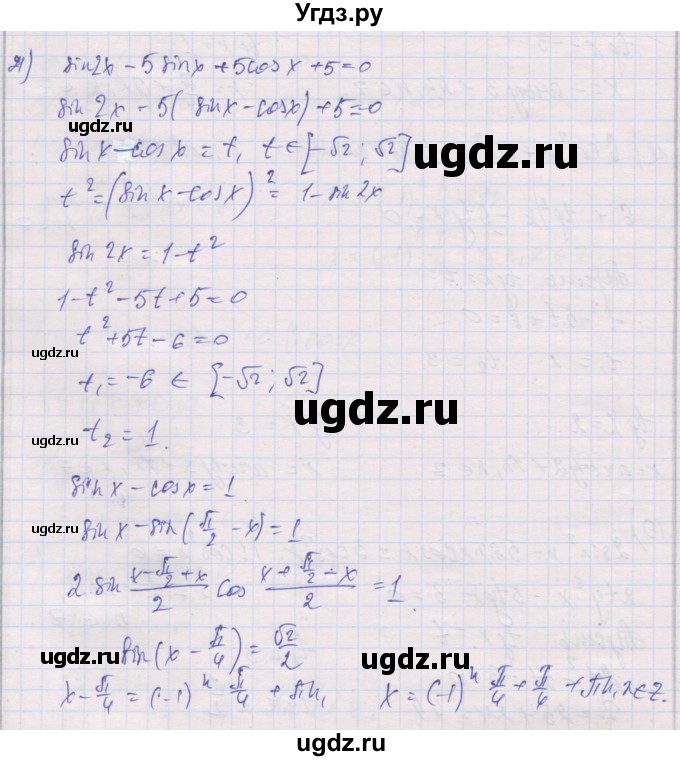 Угдз.ру
г) sin2x − 5sinx + 5cosx + 5 = 0
sin2x − 5(sinx − cosx) + 5 = 0
ugdz.ru
ugdz.ru
sinx − cosx = t, t ∈ [−√2; √2]
t² = (sinx − cosx)² = 1 − sin2x
sin2x = 1 − t²
1 − t² − 5t + 5 = 0
t² + 5t − 6 = 0
ugdz.ru
t₁ = −6 ∈ [−√2; √2]
ugdz.ru
ugdz.ru
t₂ = 1.
sinx − cosx = 1
ugdz.ru
sinx − sin(π/2 − x) = 1
2 sin (x − π/2 + x)/2 cos (x + π/2 − x)/2 = 1.
ugdz.ru
ugdz.ru
sin(x − π/4) = √2/2
x − π/4 = (−1)ⁿ π/4 + πn, x = (−1)ⁿ π/4 + π/4 + πn, n ∈ Z.
ugdz.ru